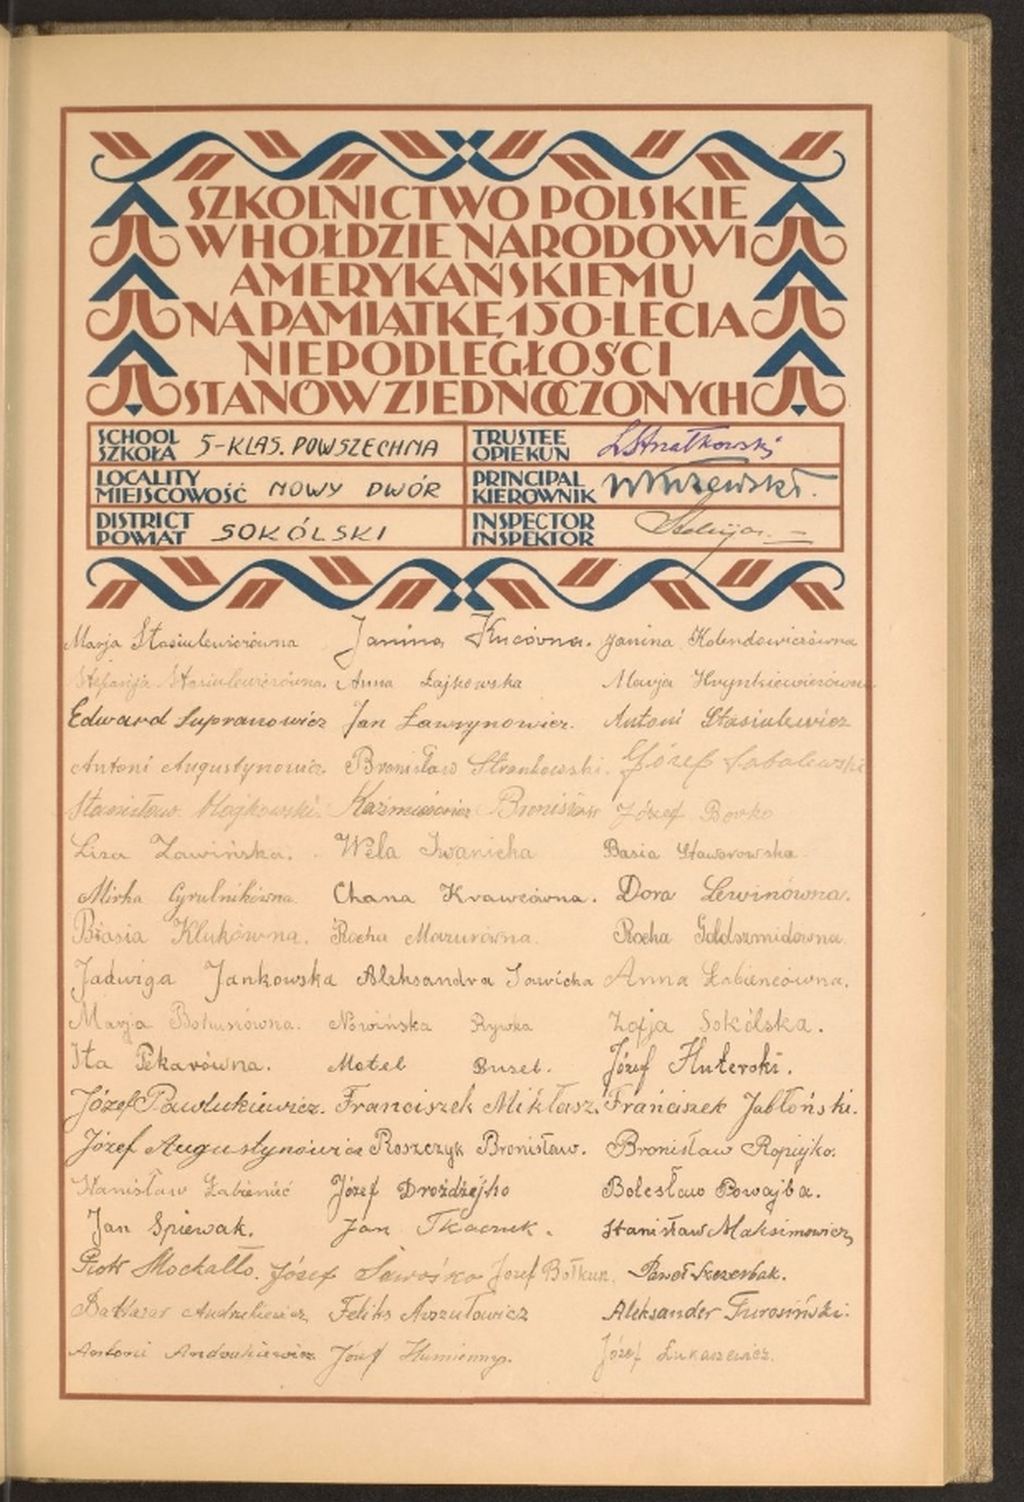 SZKOLNICTWO POLSKIE
W HOŁDZIE NARODOWI
AMERYKAŃSKIEMU
NA PAMIĄTKĘ 150-LECIA
NIEPODLEGŁOŚCI
STANÓW ZJEDNOCZONYCH
SCHOOL SZKOŁA 5-KLAS. POWSZECHNA
TRUSTEE OPIEKUN
LOCALITY MIEJSCOWOŚĆ NOWY DWÓR
PRINCIPAL KIEROWNIK
DISTRICT POWIAT SOKÓLSKI
INSPECTOR INSPEKTOR
Marja Stasiulewiczówna Janina Kucówna. Janina Kolendowiczówna
Stefanja Stasiulewiczówna. Anna Zajkowska Marja Hrynkiewiczówna
Edward Supranowicz Jan Ławrynowicz. Antoni Stasiulewicz
Antoni Augustynowicz. Bronisław Strankowski. Józef Sobolewski
Stanisław Majkowski. Kaźmierowicz Bronisław Józef Borko
Liza Zawińska. Wela Iwanicka Basia Staworowska
Mirka Cyrulnikówna Chana Krawcówna. Dora Lewinówna.
Błasia Klukówna. Rocha Mazurówna. Rocha Goldszmidówna
Jadwiga Jankowska Aleksandra Sawicka Anna Łabieńcówna.
Marja Bohunówna. Nowińska Rywka Zofja Sokólska.
Ita Pekarówna. Motel Busel. Józef Huterski.
Józef Pawlukiewicz. Franciszek Mikłasz. Franciszek Jabłoński.
Józef Augustynówicz Roszczyk Bronisław. Bronisław Ropiejko.
Stanisław Łabieniéc Józef Drożdżejko Bolesław Powajba.
Jan Śpiewak. Jan Tkaczuk. Stanisław Maksimowicz
Piotr Mockałło. Józef Sawośko Józef Bołkun. Paweł Szczerbak.
Baltazar Andrukiewicz Feliks Aszułowicz Aleksander Turosiński.
Antoni Andrukiewicz Józef Humienny. Józef Łukaszewicz.